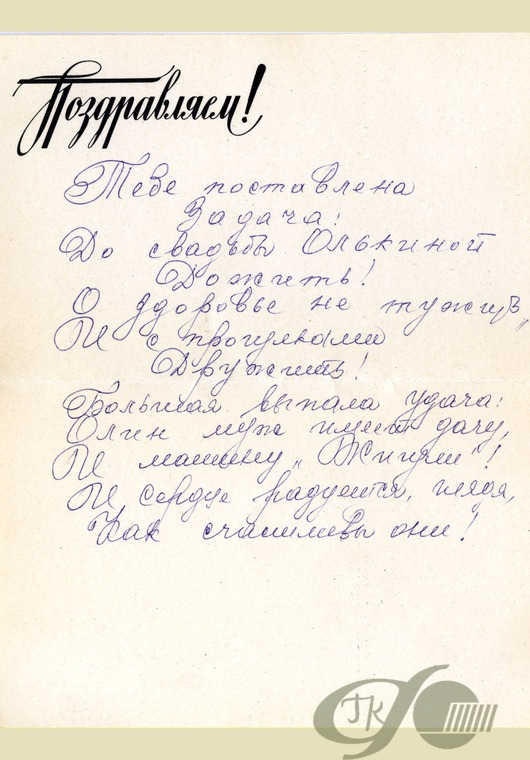 Поздравляем!
Тебе поставлена
Задача:
До свадьбы Олькиной
Дожить!
О здоровье не тужить,
И с прогулками
Дружить!
Большая выпала удача:
Олин муж имеет дачу,
И машину „Жигули"!
И сердце радуется, глядя,
Как счастливы они!
ГК